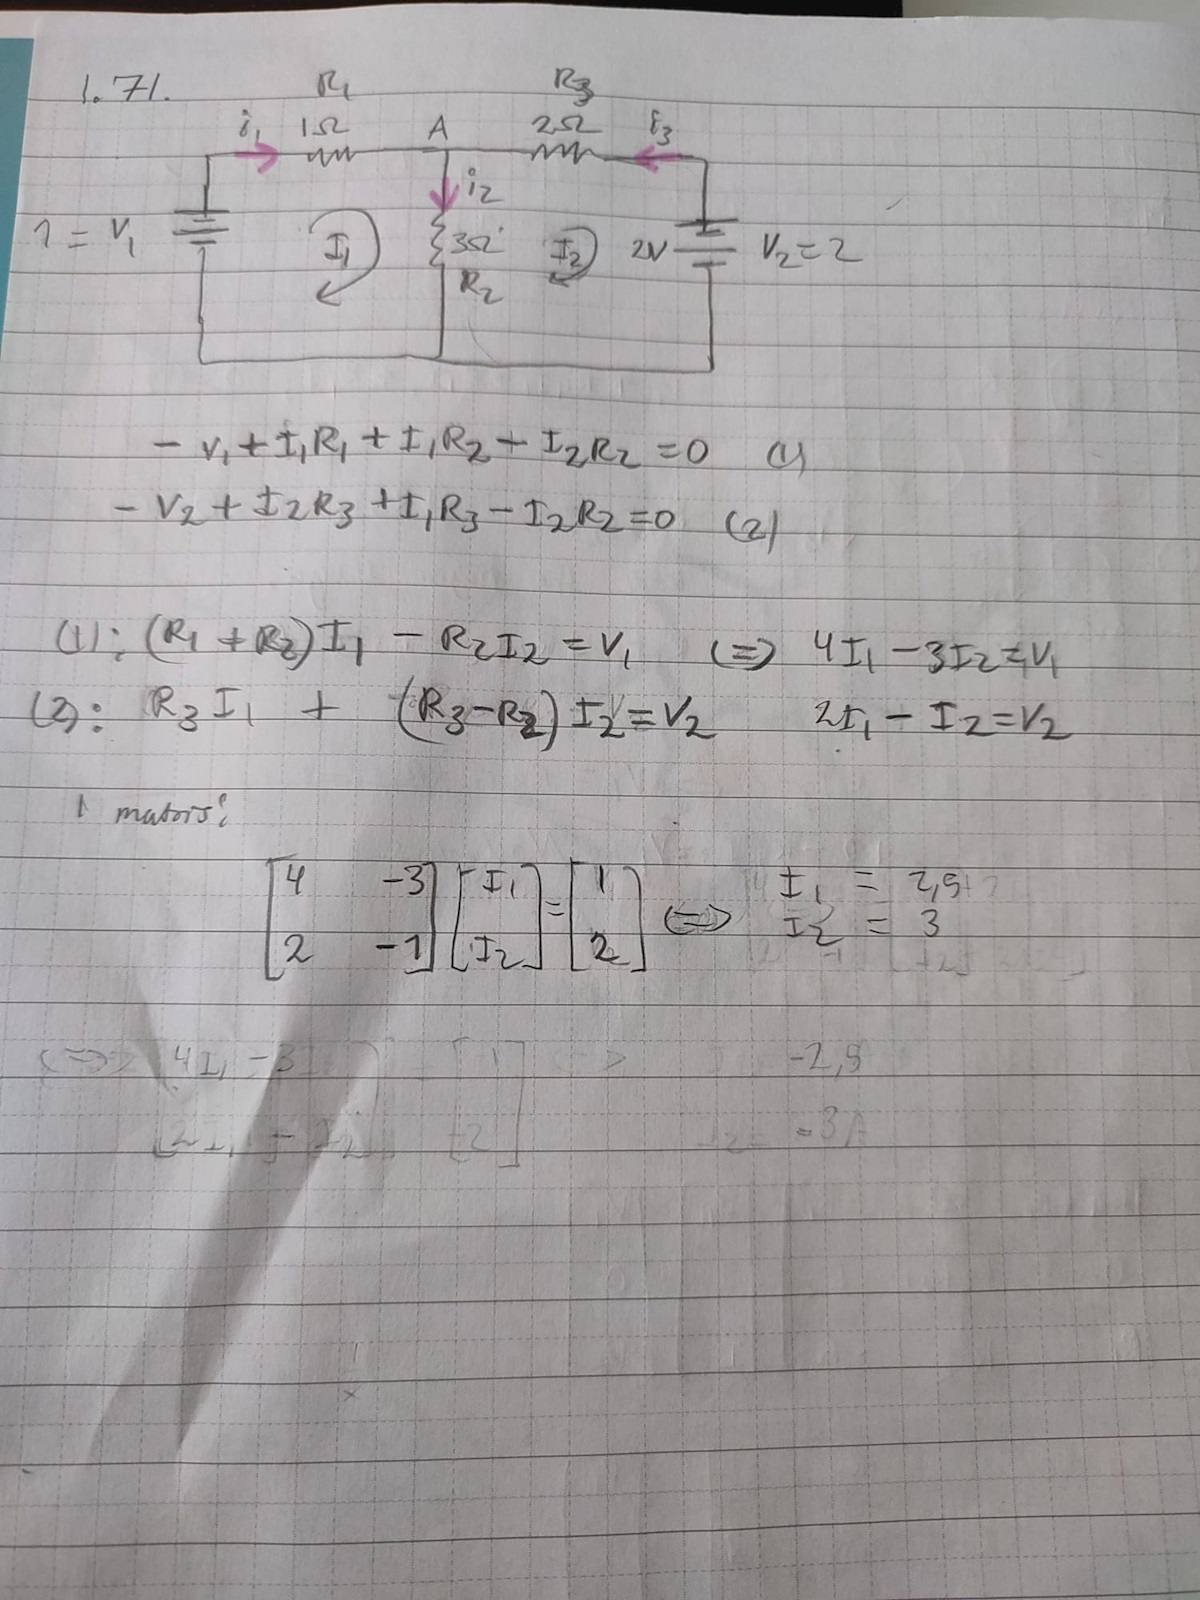 1.71.
R₁ R₃
i₁ 1Ω A 2Ω i₃
i₂
1 = V₁ I₁ 3Ω I₂ 2V V₂=2
R₂
- V₁ + I₁R₁ + I₁R₂ - I₂R₂ = 0 (1)
- V₂ + I₂R₃ + I₁R₃ - I₂R₂ = 0 (2)
(1): (R₁ + R₂)I₁ - R₂I₂ = V₁ (=) 4I₁ - 3I₂ = V₁
(2): R₃I₁ + (R₃-R₂)I₂ = V₂ 2I₁ - I₂ = V₂
[4 -3] [I₁] = [1] (=) I₁ = 2,5
[2 -1] [I₂] [2] I₂ = 3
(=) 4I₁ - 3 1 -2,5
2I₁ - I₂ -2 I₂= -3A